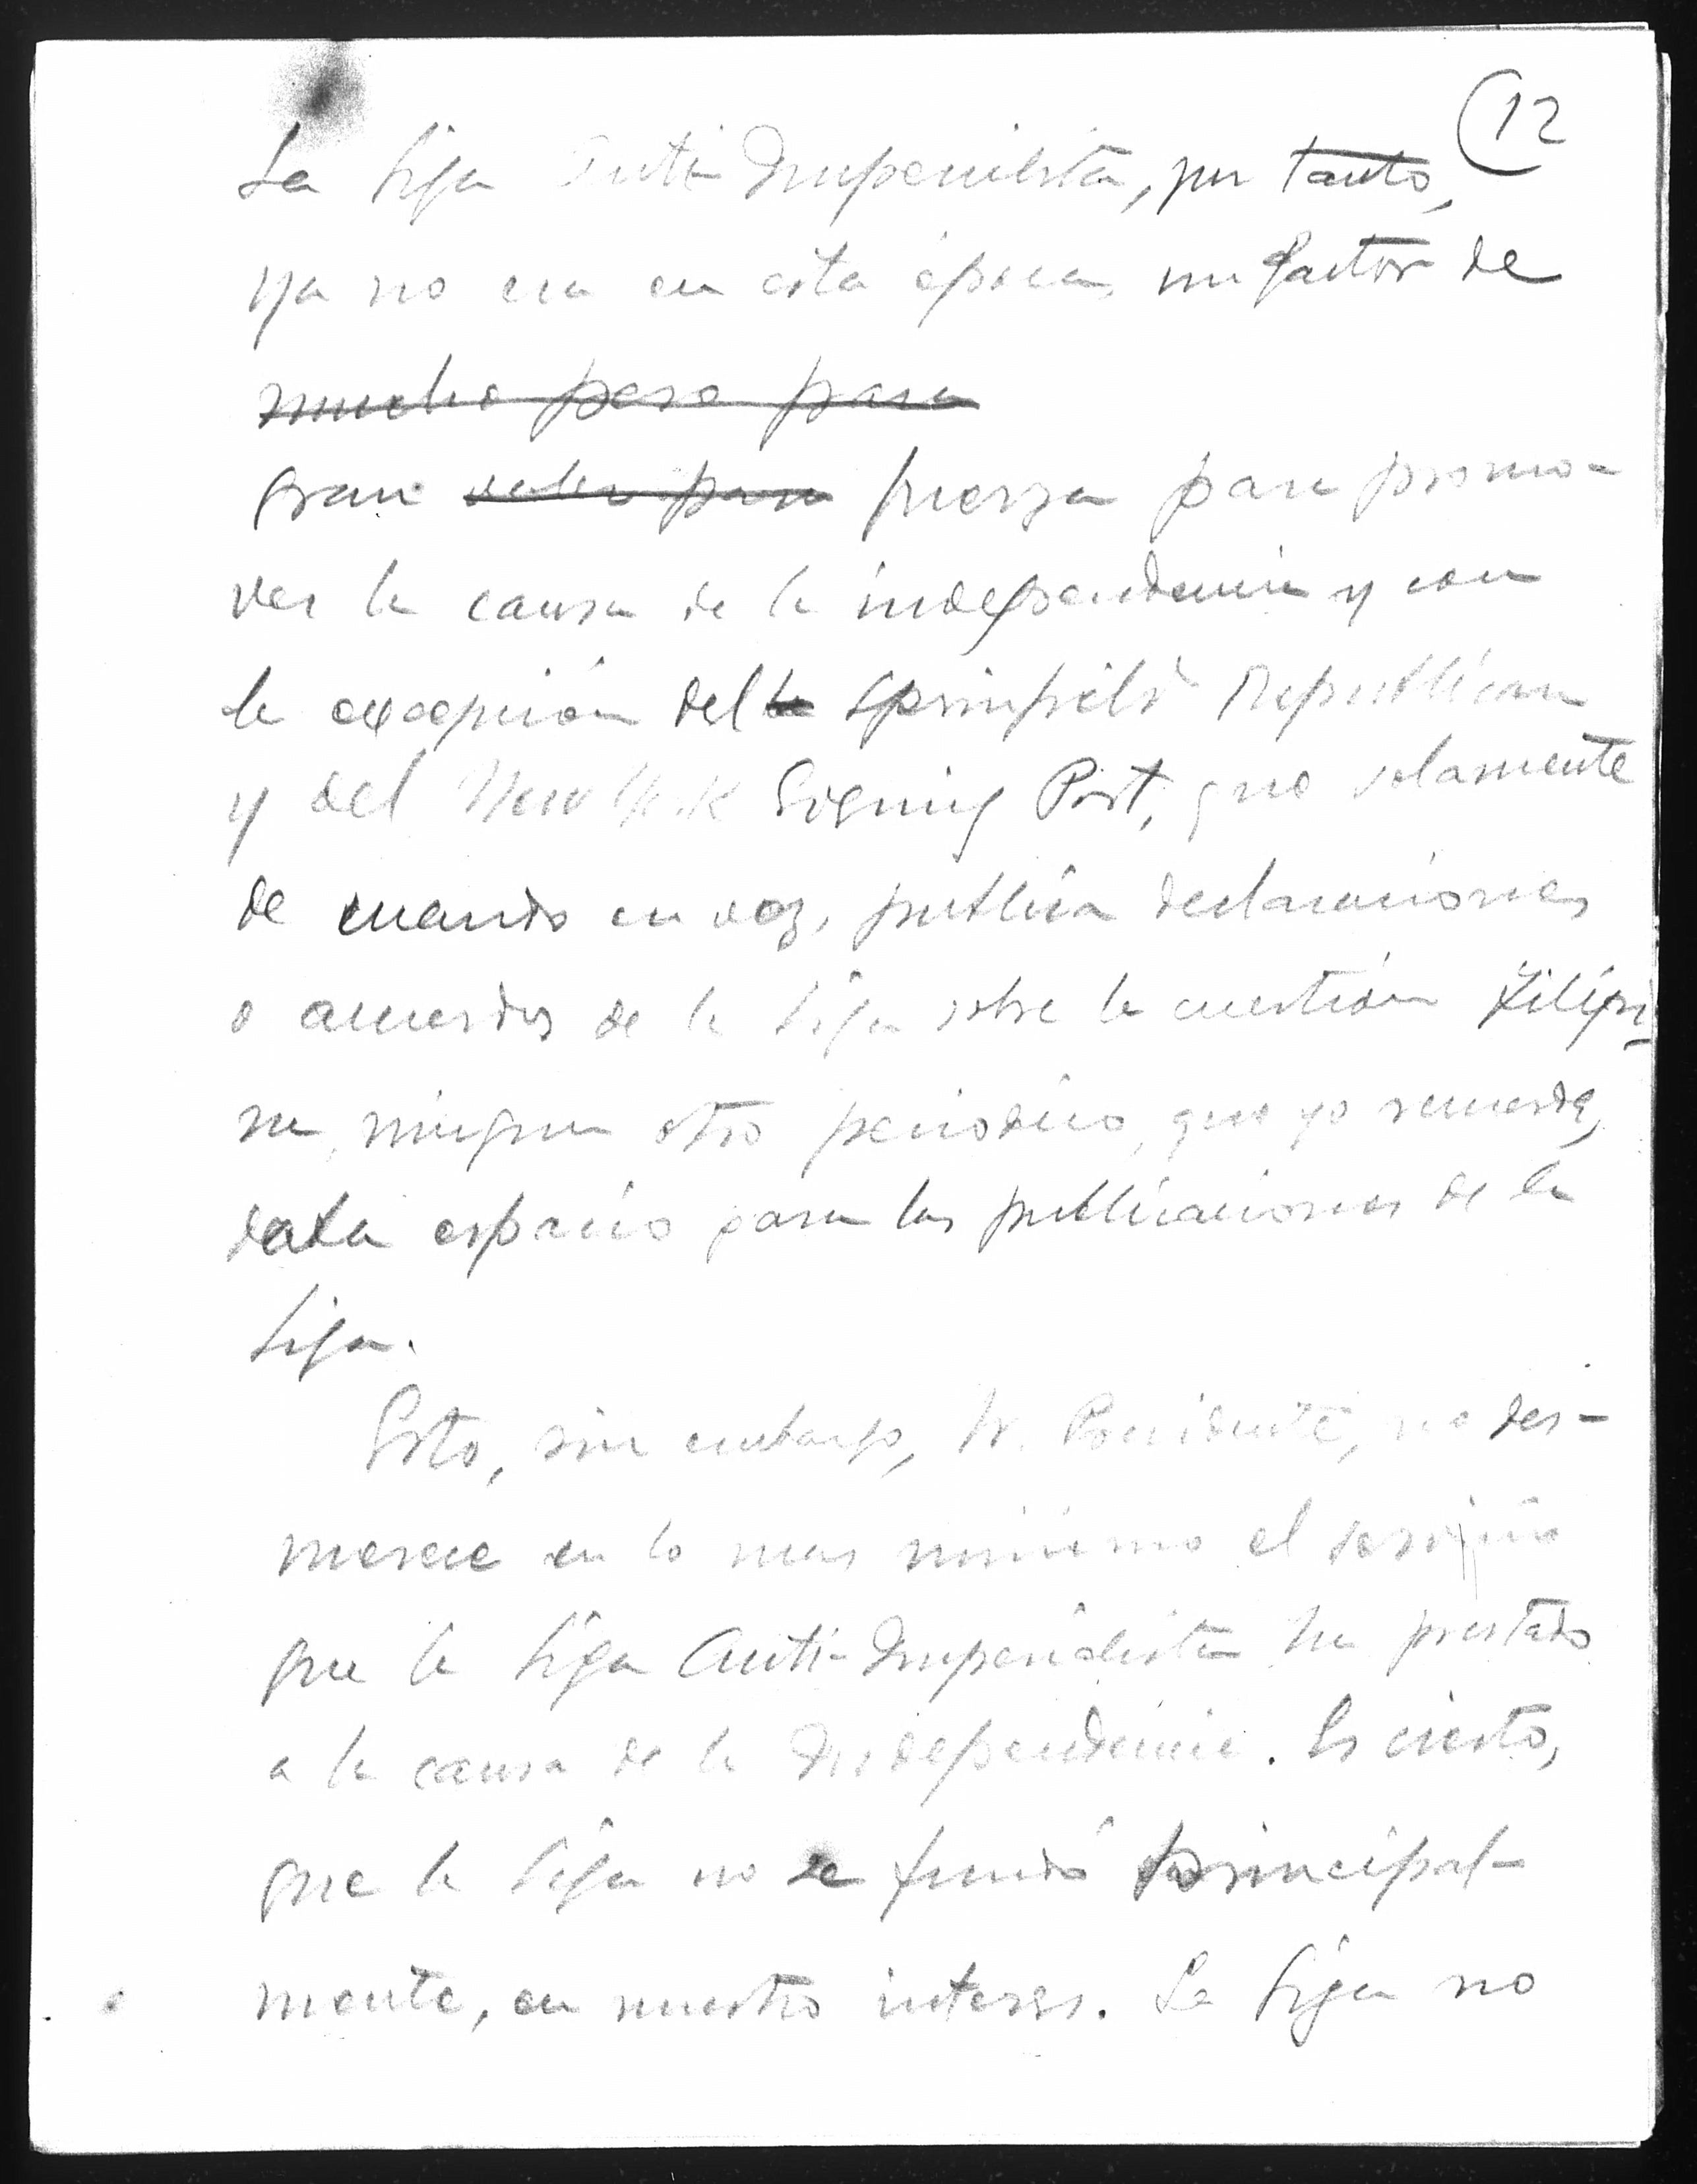 12
La Liga Anti-Imperialista, por tanto,
ya no era en esta época, un factor de
mucho peso para
gran valor para fuerza para promo-
ver la causa de la independencia y con
la excepción del la Springfield Republican
y del New York Evening Post, que solamente
de cuando en vez, publica declaraciones
o acuerdos de la Liga sobre la cuestión filipi-
na, ningun otro periodico, que yo recuerde,
daba espacio para las publicaciones de la
Liga.
Esto, sin embargo, Sr. Presidente, no des-
merece en lo mas minimo el servicio
que la Liga Anti-Imperialista ha prestado
a la causa de la Independencia. Es cierto,
que la Liga no se fundó principal-
mente, en nuestro interes. La Liga no